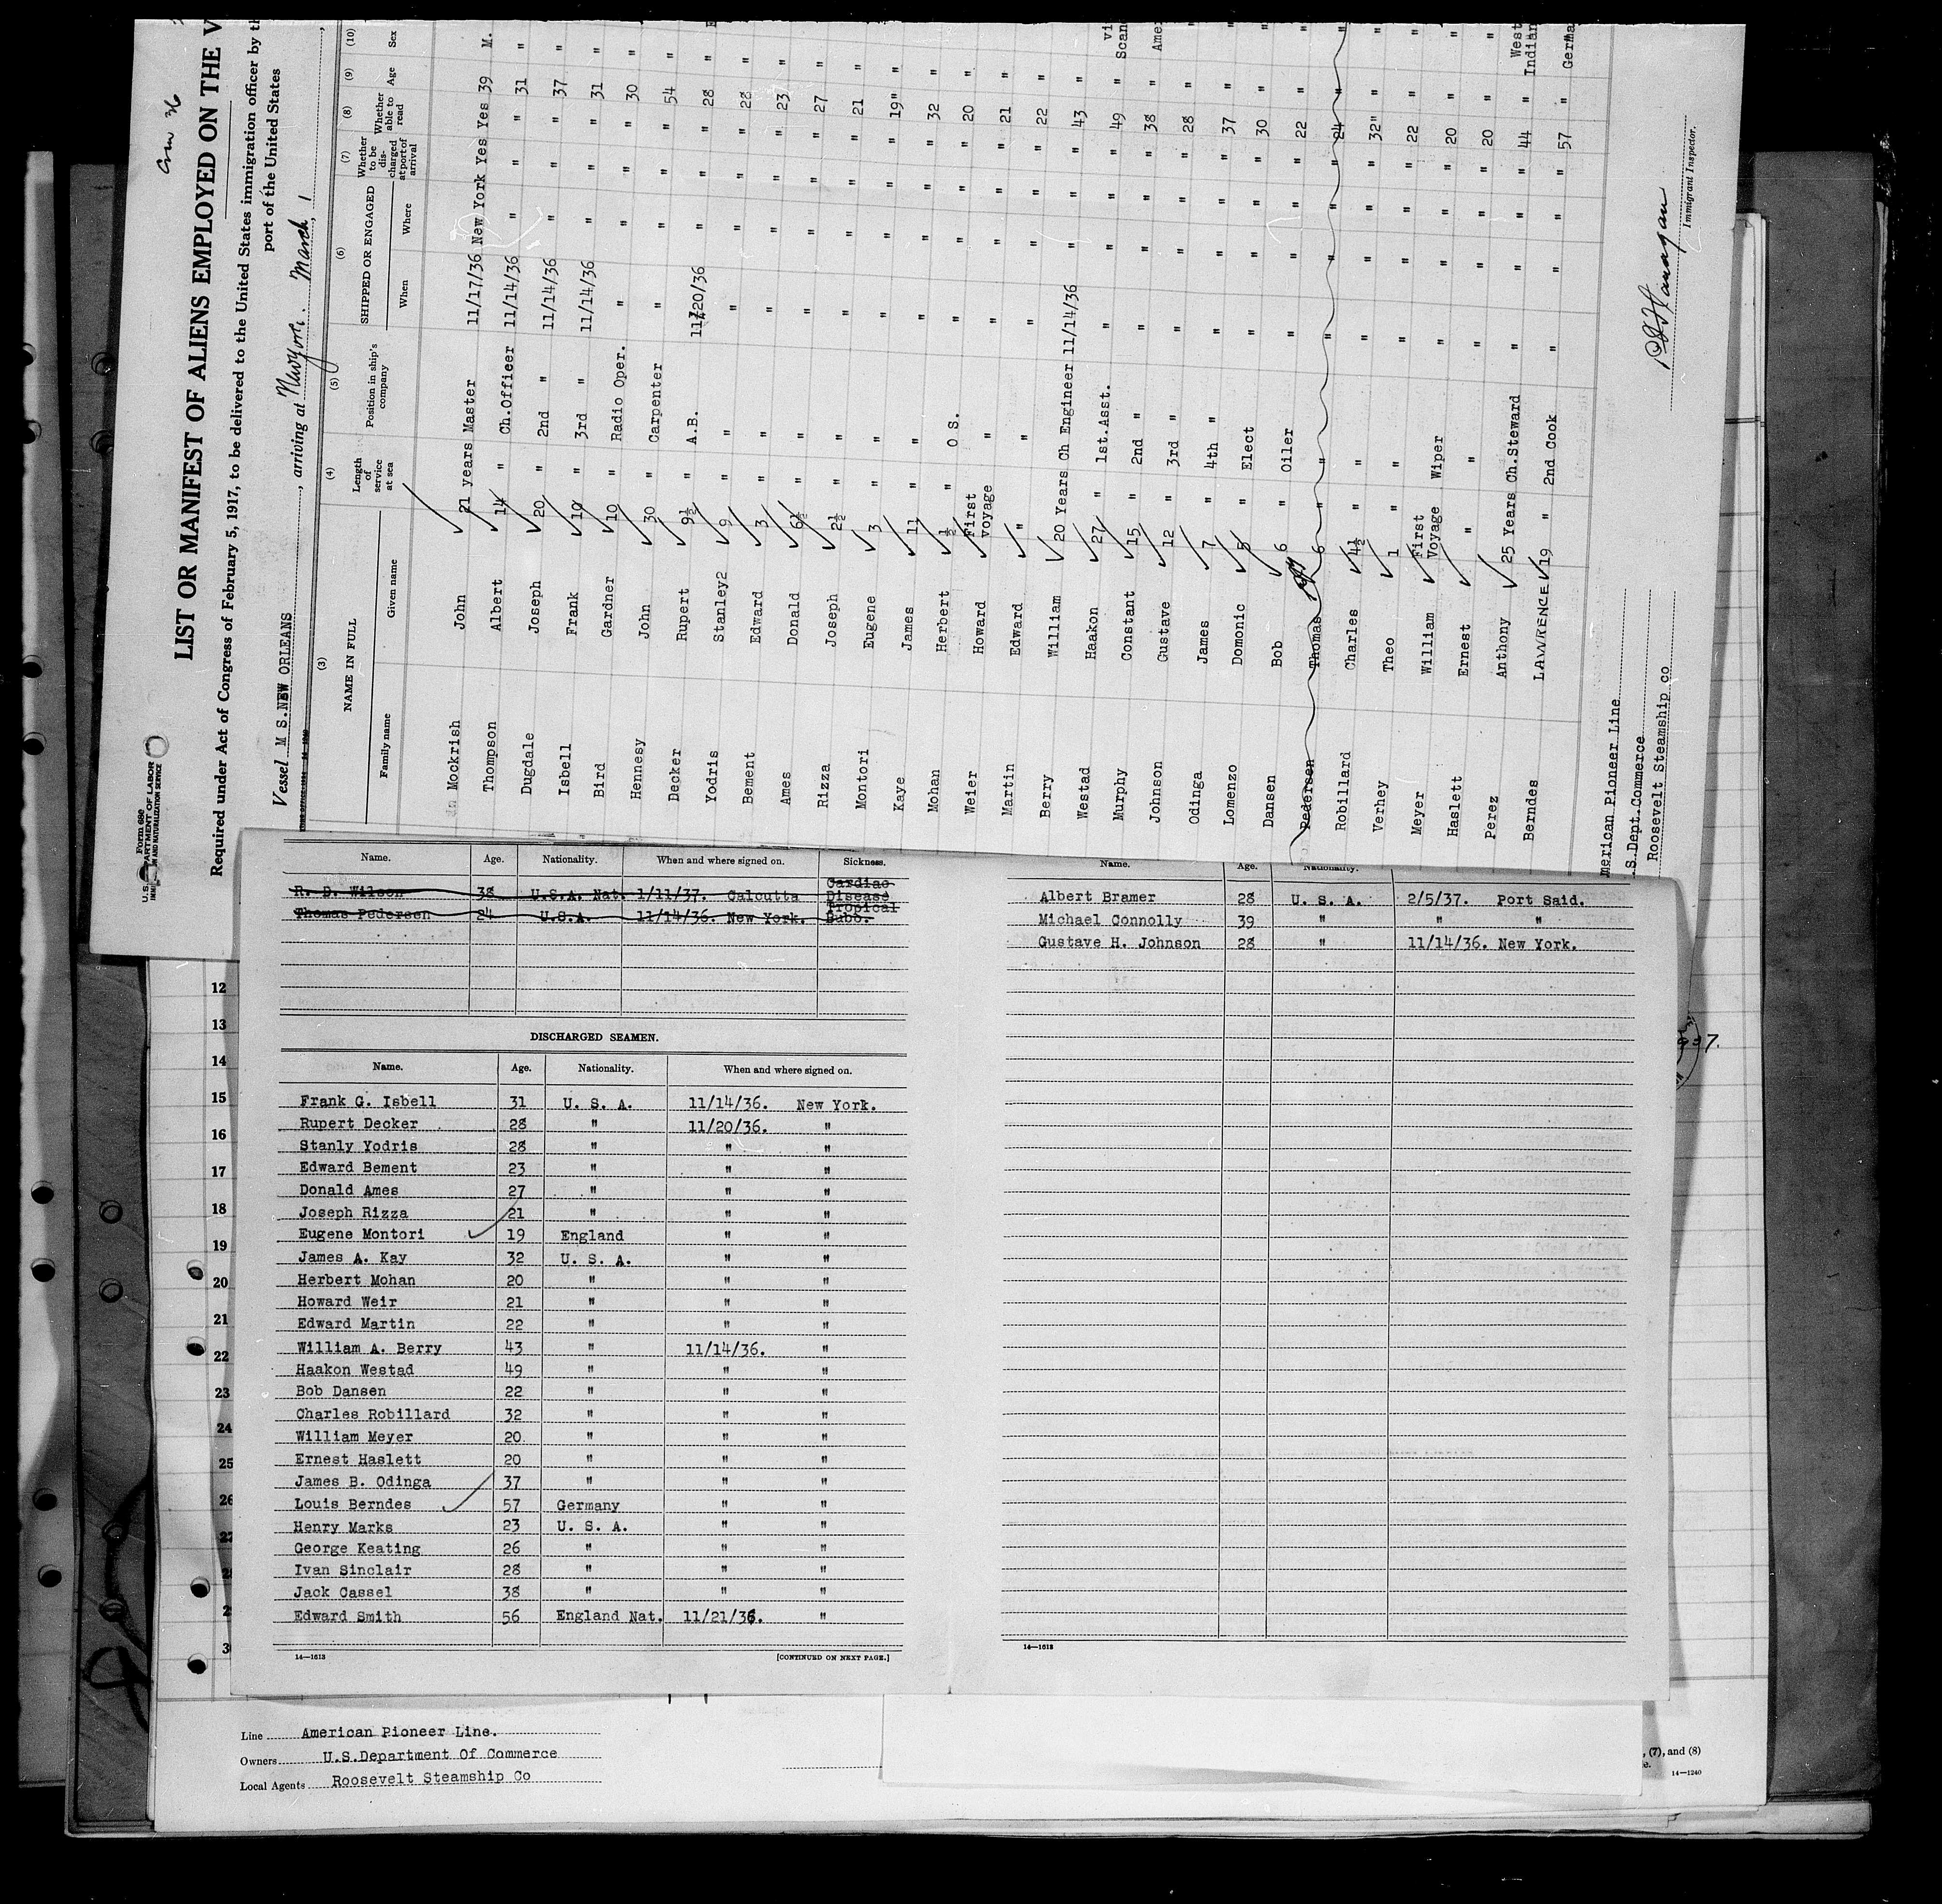 Form 680
U.S. DEPARTMENT OF LABOR
IMMIGRATION AND NATURALIZATION SERVICE
LIST OR MANIFEST OF ALIENS EMPLOYED ON THE V
Required under Act of Congress of February 5, 1917, to be delivered to the United States immigration officer by th
port of the United States
Vessel M S.NEW ORLEANS, arriving at Newyork. March 1
(3) (4) (5) (6) (7) (8) (9) (10)
NAME IN FULL Length of service at sea Position in ship's company SHIPPED OR ENGAGED Whether to be discharged at port of arrival Whether able to read Age Sex
Family name Given name When Where
Mockrish John 21 years Master 11/17/36 New York Yes Yes 39 M.
Thompson Albert 14 " Ch.Officer 11/14/36 " " " 31 "
Dugdale Joseph 20 " 2nd " 11/14/36 " " " 37 "
Isbell Frank 10 " 3rd " 11/14/36 " " " 31 "
Bird Gardner 10 " Radio Oper. " " " " 30 "
Hennesy John 30 " Carpenter " " " " 54 "
Decker Rupert 9½ " A.B. 11/20/36 " " " 28 "
Yodris Stanley2 9 " " " " " " 28 "
Bement Edward 3 " " " " " " 23 "
Ames Donald 6½ " " " " " " 27 "
Rizza Joseph 2½ " " " " " " 21 "
Montori Eugene 3 " " " " " " 19 "
Kaye James 11 " " " " " " 32 "
Mohan Herbert ½ " O S. " " " " 20 "
Weier Howard First voyage " " " " " 21 "
Martin Edward " " " " " " 22 "
Berry William 20 Years Ch Engineer 11/14/36 " " " 43 "
Westad Haakon 27 " 1st.Asst. " " " " 49 " Scan
Murphy Constant 15 " 2nd " " " " " 38 " Amer
Johnson Gustave 12 " 3rd " " " " " 28 "
Odinga James 7 " 4th " " " " " 37 "
Lomenzo Domonic 5 " Elect " " " " 30 "
Dansen Bob 6 " Oiler " " " " 22 "
Pedersen Thomas 6 " " " " " " 24 "
Robillard Charles 4½ " " " " " " 32 "
Verhey Theo 1 " " " " " " 22 "
Meyer William First Voyage Wiper " " " " 20 "
Haslett Ernest " " " " " " 20 "
Perez Anthony 25 Years Ch.Steward " " " " 44 " West Indian
Berndes LAWRENCE 19 " 2nd Cook " " " " 57 " German
merican Pioneer Line
.S.Dept.Commerce
Roosevelt Steamship co
Immigrant Inspector.
Name. Age. Nationality. When and where signed on. Sickness.
R. D. Wilson 38 U.S.A. Nat. 1/11/37. Calcutta Cardiac Disease
Thomas Pedersen 24 U.S.A. 11/14/36. New York. Tropical Bubo.
DISCHARGED SEAMEN.
Name. Age. Nationality. When and where signed on.
Frank G. Isbell 31 U. S. A. 11/14/36. New York.
Rupert Decker 28 " 11/20/36. "
Stanly Yodris 28 " " "
Edward Bement 23 " " "
Donald Ames 27 " " "
Joseph Rizza 21 " " "
Eugene Montori 19 England " "
James A. Kay 32 U. S. A. " "
Herbert Mohan 20 " " "
Howard Weir 21 " " "
Edward Martin 22 " " "
William A. Berry 43 " 11/14/36. "
Haakon Westad 49 " " "
Bob Dansen 22 " " "
Charles Robillard 32 " " "
William Meyer 20 " " "
Ernest Haslett 20 " " "
James B. Odinga 37 " " "
Louis Berndes 57 Germany " "
Henry Marks 23 U. S. A. " "
George Keating 26 " " "
Ivan Sinclair 28 " " "
Jack Cassel 38 " " "
Edward Smith 56 England Nat. 11/21/36. "
14—1613 [CONTINUED ON NEXT PAGE.]
Name. Age. Nationality.
Albert Bramer 28 U. S. A. 2/5/37. Port Said.
Michael Connolly 39 " " "
Gustave H. Johnson 28 " 11/14/36. New York.
14—1613
12
13
14
15
16
17
18
19
20
21
22
23
24
25
26
Line American Pioneer Line.
Owners U.S.Department Of Commerce
Local Agents Roosevelt Steamship Co
, (7), and (8)
14—1240